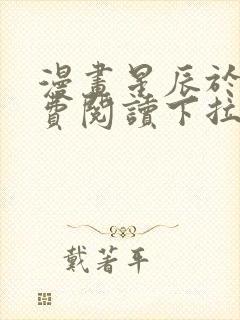 漫畫星辰於
費閱讀下拉
戴著平